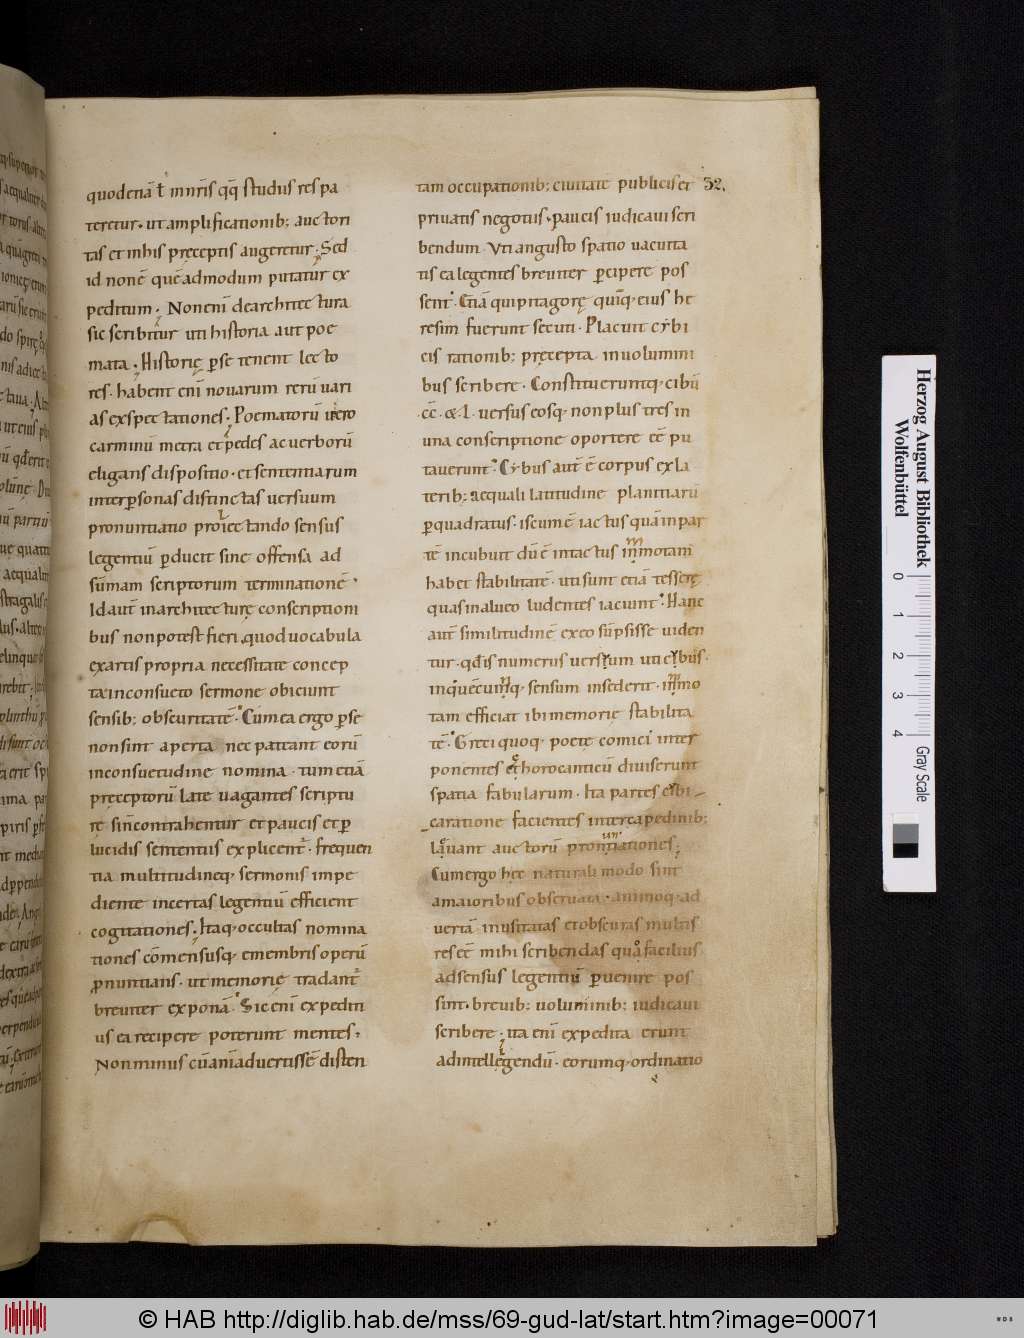 quodetiā ł in nr̄is qq̄ studiis res pa
teretur· ut amplificationib; auctori
tas et in his pręceptis augeretur; Sed
id non ē quēadmodum putatur ex
peditum; Non enī de architectura
sic scribitur uti historia aut poe
mata; Historię p̱se tenent lecto
res· habent enī novarum rerū vari
as exspectationes; Poematorū vero
carminū metra et pedes ac verborū
eligans dispositio· et sententiarum
inter p̱sonas distinctas versuum
pronuntiatio proiectando sensus
legentiū p̱ducit sine offensa ad
sūmam scriptorum terminationē·
Id aut̄ in architecturę conscriptioni
bus non potest fieri quod vocabula
ex artis propria necessitate concep
ta inconsueto sermone obiciunt
sensib; obscuritatē· Cum ea ergo p̱se
non sint aperta nec pateant eorū
in consuetudine nomina· tum etiā
pręceptorū late vagantes scriptu
rę sin̄ contrahentur et paucis et p̱
lucidis sententiis explicent᷑· frequen
tia multitudineq· sermonis impe
diente incertas legentiū efficient
cogitationes; Itaq· occultas nomina
tiones cōmensusq· e membris operū
p̱nuntians· ut memorię tradant᷑
breviter exponā· Sic enī expediti
us ea recipere poterunt mentes;
Non minus cū animadvertissē disten
tam occupationib; civitatē publicis et 32.
privatis negotiis· paucis iudicavi scri
bendum· Uti angusto spatio vacuita
tis ea legentes breviter p̱cipere pos
sent· Etiā qui pitagorę quiq· eius he
resim fuerunt secuti· Placuit cybi
cis rationib; pręcepta in volumini
bus scribere· Constitueruntq· cibū
·cc̄· & ·l· versus eosq· non plus tres in
una conscriptione oportere eē pu
taverunt· Cybus aut̄ ē corpus ex la
terib; aequali latitudine planitiarū
p̱quadratus· is cum ē iactus quā in par
tē incubuit dū ē intactus inmotam
habet stabilitatē· uti sunt etiā tesserę
quas in alveo ludentes iaciunt· Hanc
aut̄ similitudinē ex eo sūpsisse viden
tur· qd̄ is numerus versuum uti cybus·
in quēcumq· sensum insederit· inmo
tam efficiat ibi memorię stabilita
tē· Greci quoq· poetę comici inter
ponentes e choro canticū diviserunt
spatia fabularum· Ita partes cybi
ca ratione facientes intercapedinib;
levant auctorū pronuntiationes;
Cum ergo hęc naturali modo sint
a maioribus observata· animoq· ad
vertā inusitatas et obscuras multis
res eē mihi scribendas quo facilius
ad sensus legentiū p̱venire pos
sint· brevib; voluminib; iudicavi
scribere· ita enī expedita erunt
ad intellegendū· eorumq· ordinatio
Herzog August Bibliothek
Wolfenbüttel
0 1 2 3 4
Gray Scale
© HAB http://diglib.hab.de/mss/69-gud-lat/start.htm?image=00071